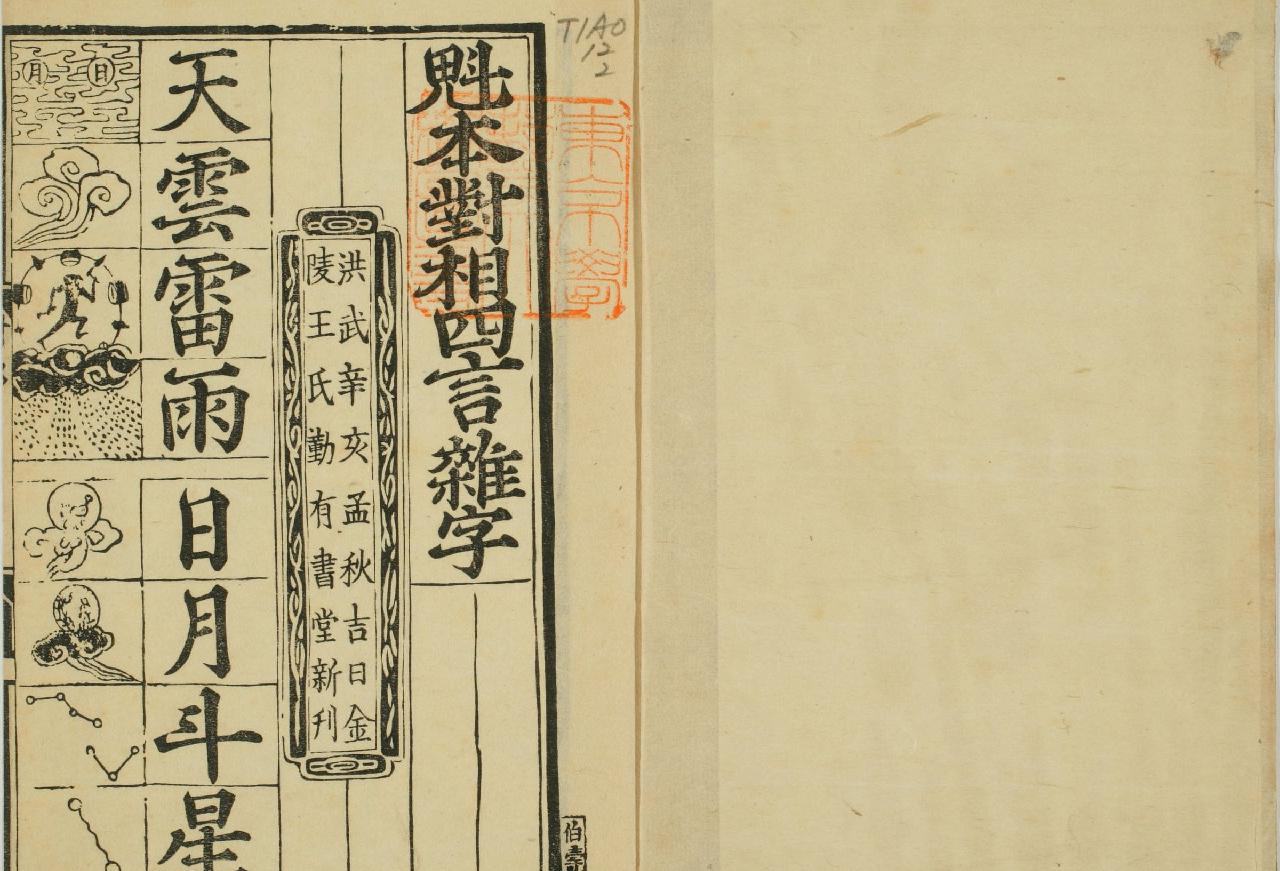 TIAO
12
2
魁本對相四言雜字
洪武辛亥孟秋吉日金
陵王氏勤有書堂新刊
天雲雷雨
日月斗星
日
月
伯壽